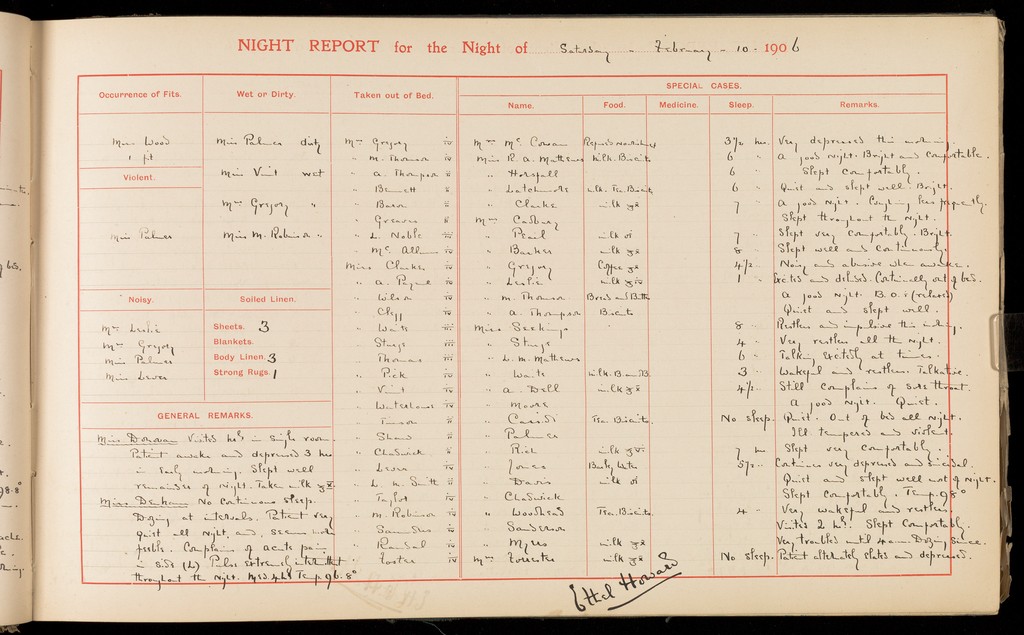 NIGHT REPORT for the Night of Saturday - February - 10 - 1906
Occurrence of Fits.
Miss Wood
1 fit
Violent.
Miss Palmer
Noisy.
Mrs Leslie
Mrs Gregory
Miss Palmer
Miss Lewes
Wet or Dirty.
Miss Palmer dirty
Miss Vint wet
Mrs Gregory "
Miss M. Robinson "
Soiled Linen.
Sheets. 3
Blankets.
Body Linen. 3
Strong Rugs. 1
GENERAL REMARKS.
Miss Donovan Visited hrly in single room.
Patient awake and depressed 3 hrs
in early morning. Slept well
remainder of night. Take milk
Miss Denham No continuous sleep.
Dozing at intervals. Patient very
quiet all night, and seems more
feeble. Complains of acute pain
in side (L) Pulse extremely intermittent
throughout the night. Temp. 96.8°
Taken out of Bed.
Mrs Gregory
" M. Thomson
" A. Thompson
" Bennett
" Baron
" Greaves
" L. Noble
" McAllum
Miss Clarke
" A. Payne
" Wilson
" Clegg
" Waite
" Sturys
" Thomas
" Pick
" Vint
" Waterhouse
" Timson
" Shaw
" Chadwick
" Lewes
" L. M. Smith
" Taylor
" M. Robinson
" Saunders
" Randal
" Foster
SPECIAL CASES.
Name. Food. Medicine. Sleep. Remarks.
Mrs McCowan Refused nourishment 3½ hrs. Very depressed this morning.
Miss R. A. Mathews Milk. Biscuits 6 " A good night. Bright and comfortable.
" Horsfall 6 " Slept comfortably.
" Latchmore Milk. Tea. Biscuits 6 " Quiet and slept well. Bright.
" Clarke milk 7 " A good night. Coughing less frequently.
Mrs Cadbury Slept throughout the night.
" Pearl milk 7 " Slept very comfortably. Bright.
" Barker milk 8 " Slept well and continuously.
" Gregory Coffee 4½ " Noisy and abusive when awake.
" Leslie milk 1 " Excited and deluded. Continually out of bed.
" M. Thomson Bread and Butter A good night. B.O.1 (relaxed)
" A. Thompson Biscuits Quiet and slept well.
Miss Seekings 8 " Restless and impulsive this evening.
" Sturys 4 " Very restless all the night.
" L. M. Mathews 6 " Talking excitedly at times.
" Waite Milk. B. and B. 3 " Wakeful and restless. Talkative.
" A. Dell milk 4½ " Still complains of sore throat.
" Moore A good night. Quiet.
" Cassidi Tea. Biscuits. No sleep. Quiet. Out of bed all night.
" Palmer Ill tempered and violent.
" Rich milk 7 hrs Slept very comfortably.
" Jones Barley Water 5½ " Continues very depressed and suicidal.
" Davis milk Quiet and slept well most of night.
" Chadwick Slept comfortably. Temp. 98°
" Woodhead Tea. Biscuits. 4 " Very wakeful and restless.
" Sanderson Visited 2 hrly. Slept comfortably.
" Myers milk Very troubled until 4 am. Dozing since.
Mrs Forrester milk No sleep. Patient alternately elated and depressed.
Ethel Howard